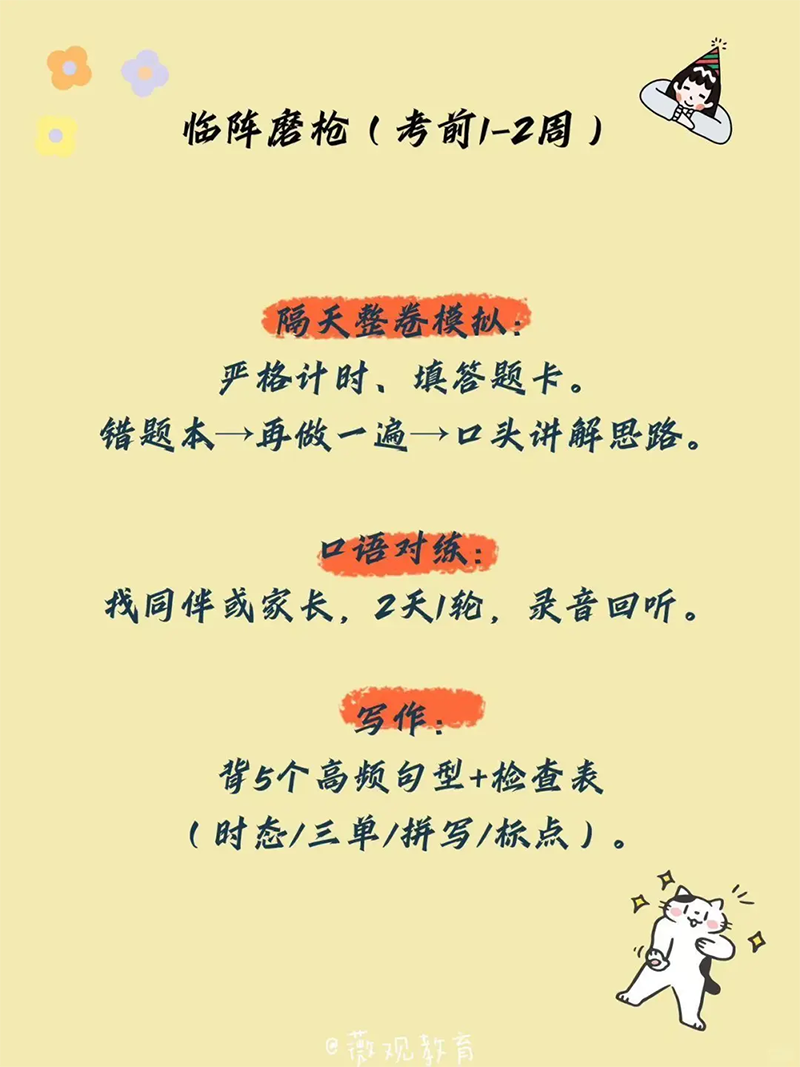 临阵磨枪（考前1-2周）
隔天整卷模拟：
严格计时、填答题卡。
错题本→再做一遍→口头讲解思路。
口语对练：
找同伴或家长，2天1轮，录音回听。
写作：
背5个高频句型+检查表
（时态/三单/拼写/标点）。
@薇观教育